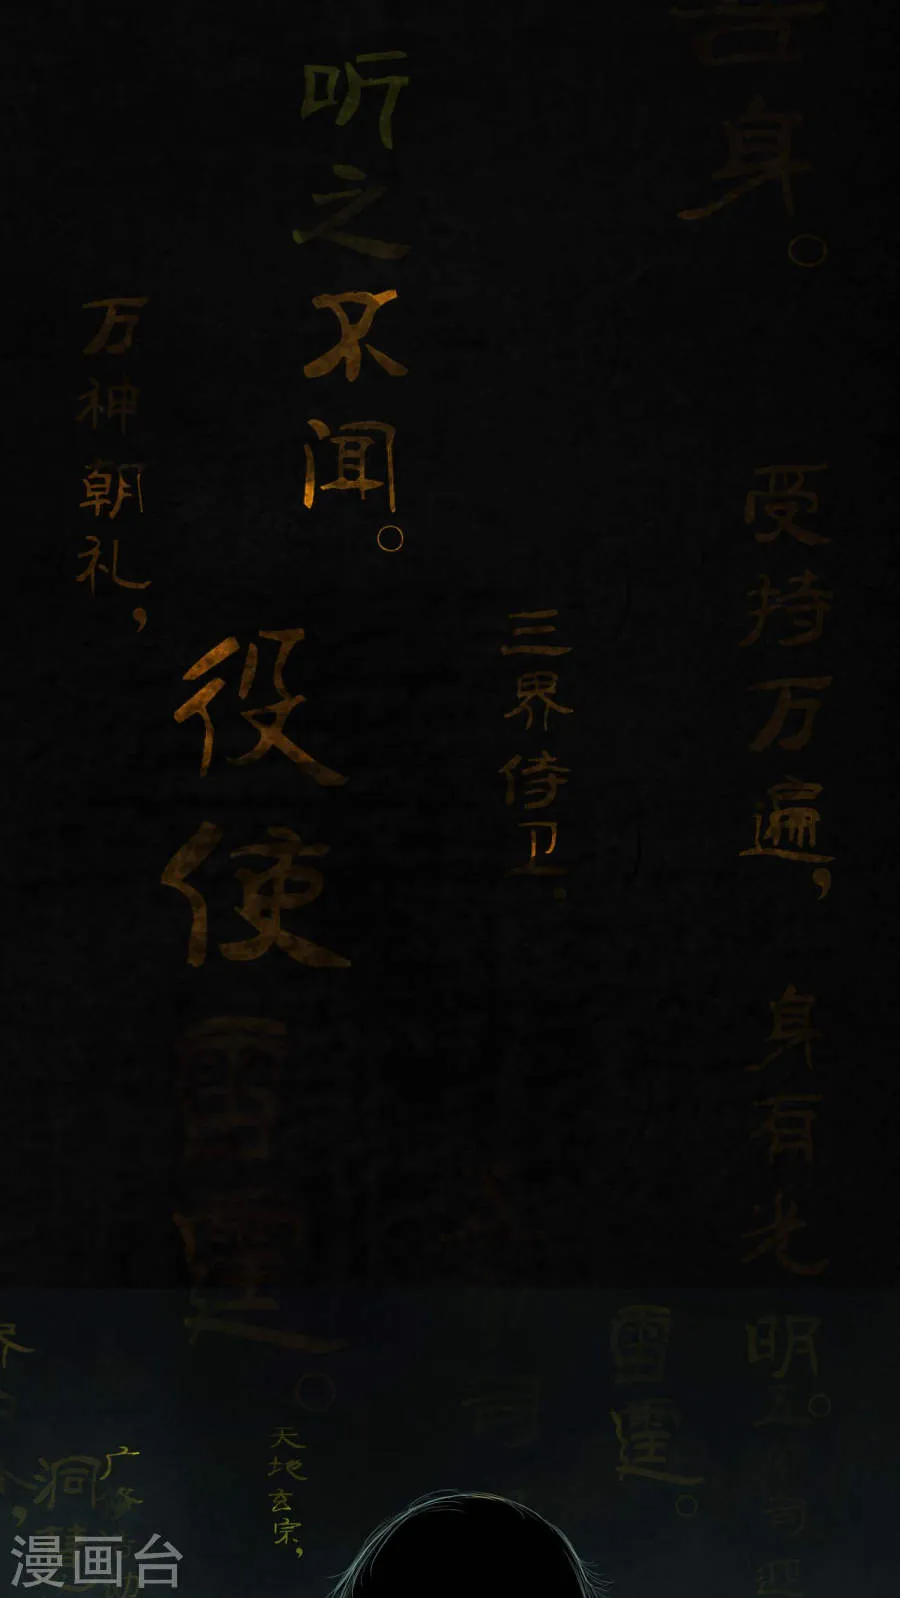 身。
受持万遍，
身有光明。
三界侍卫。
听之不闻。
役使雷霆。
万神朝礼，
雷霆。
司
天地玄宗，
广修
洞慧
界
漫画台